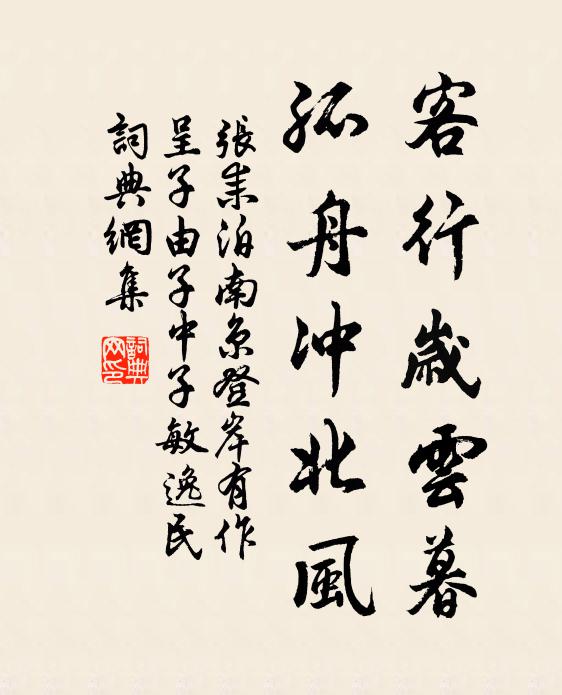 客行歲雲暮
孤舟冲北風
張耒泊南京登岸有作
呈子由子中子敏逸民
詞典網集
詞典網印